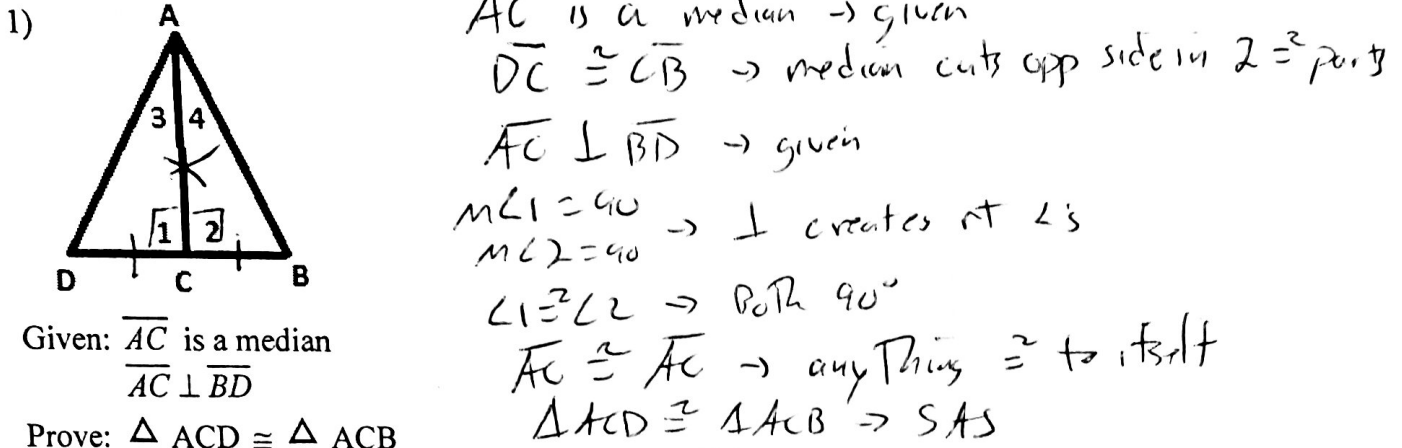 1)
A
3 4
1 2
D C B
Given: AC is a median
AC ⊥ BD
Prove: △ ACD ≅ △ ACB
AC is a median → given
DC ≅ CB → median cuts opp side in 2 ≅ parts
AC ⊥ BD → given
m∠1 = 90
m∠2 = 90 → ⊥ creates rt ∠'s
∠1 ≅ ∠2 → Both 90°
AC ≅ AC → anything ≅ to itself
△ACD ≅ △ACB → SAS